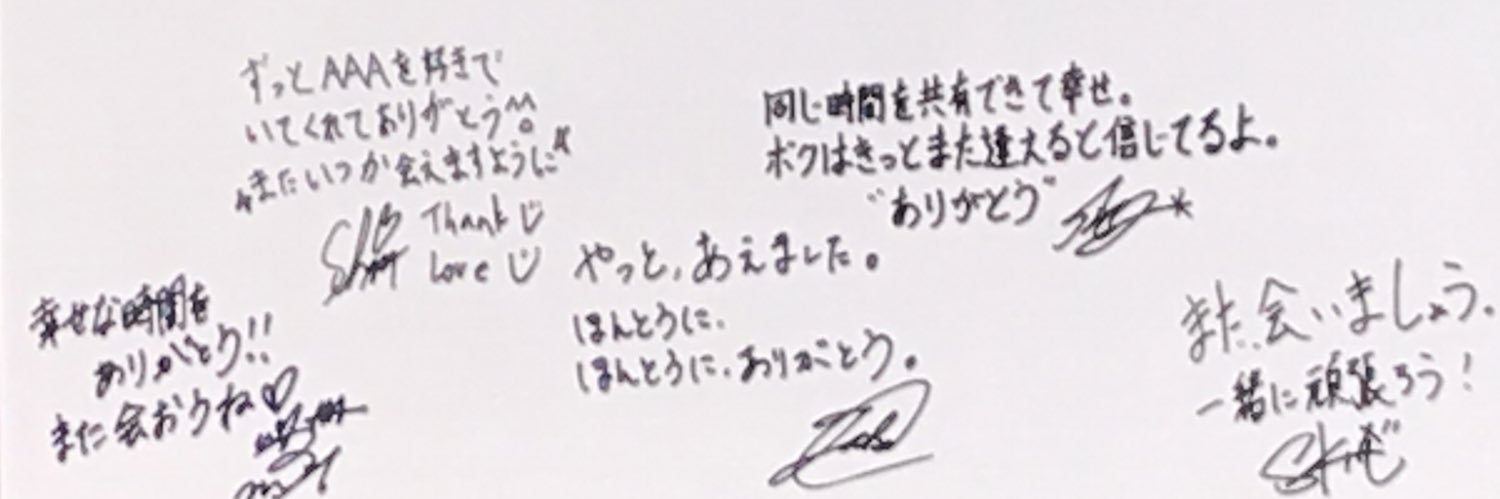 ずっとAAAを好きで
いてくれてありがとう^^。
またいつか会えますように
Thank
Love
同じ時間を共有できて幸せ。
ボクはきっとまた逢えると信じてるよ。
"ありがとう"
やっと、あえました。
ほんとうに、
ほんとうに、ありがとう。
幸せな時間を
ありがとう!!
また会おうね♡
また、会いましょう。
一緒に頑張ろう!